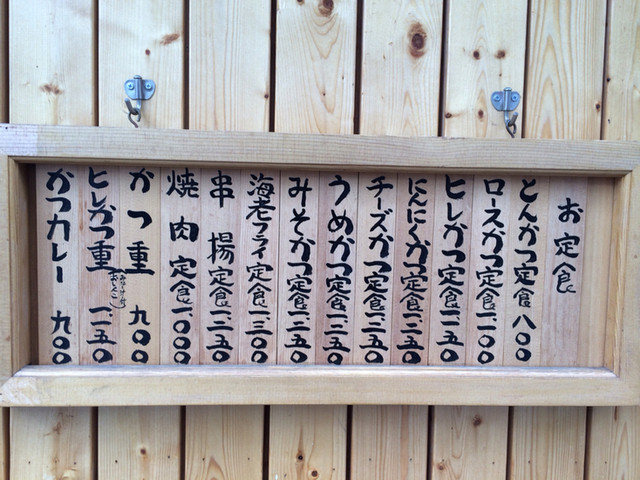 お定食
とんかつ定食 八〇〇
ロースかつ定食 一、一〇〇
ヒレかつ定食 一、一五〇
にんにくかつ定食 一、二五〇
チーズかつ定食 一、二五〇
うめかつ定食 一、二五〇
みそかつ定食 一、二五〇
海老フライ定食 一、三〇〇
串揚定食 一、一五〇
焼肉定食 一、〇〇〇
かつ重 九〇〇
ヒレかつ重 一、一五〇
かつカレー 九〇〇